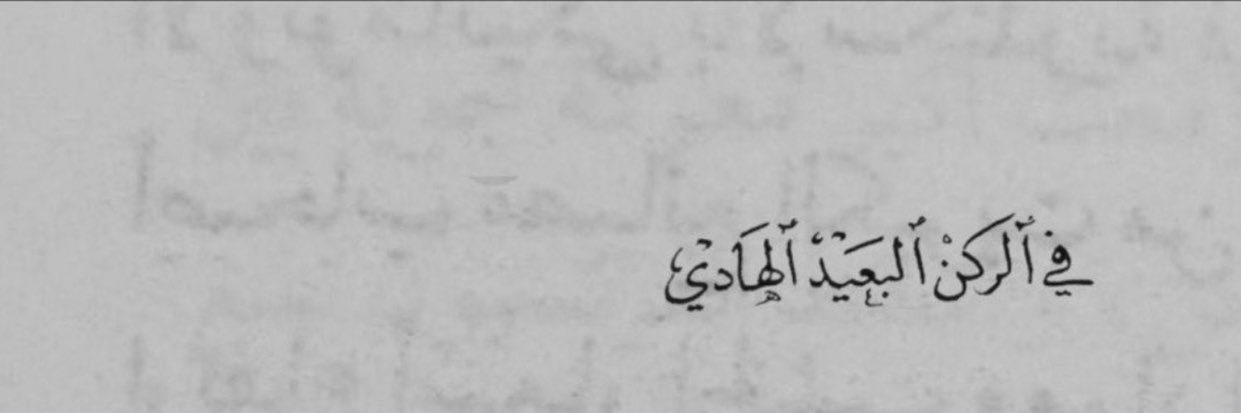 في ٱلركنْ ٱلبعَيْدْ ٱلهَادئ